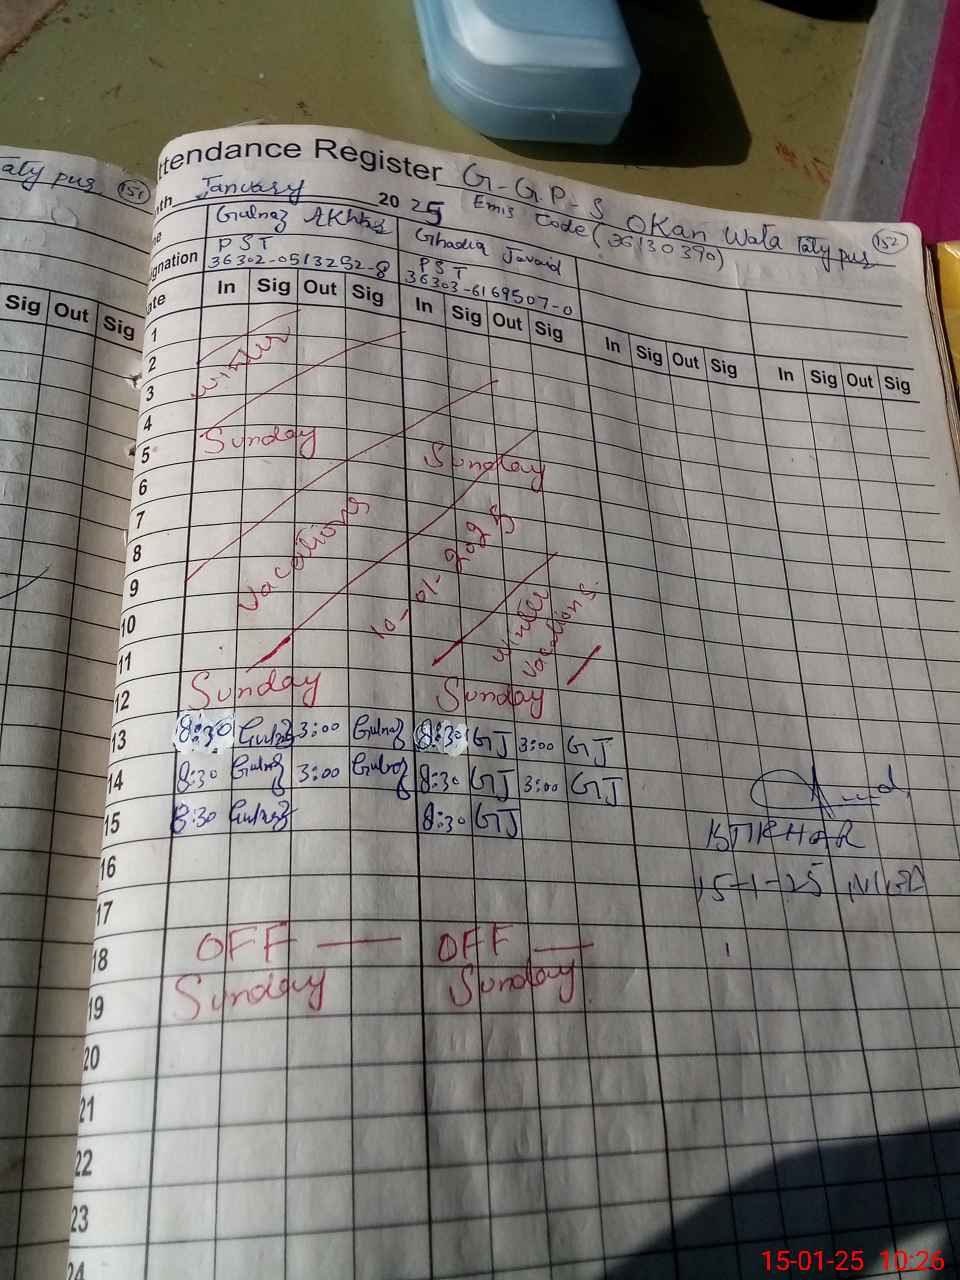 aty pur 151
ttendance Register G-G.P-S OKan Wala Taty pur 152
nth January 2025 Emis Code (36130390)
e Gulnaz AKhtar Ghadia Javaid
gnation PST PST
36302-0513252-8 36303-6169507-0
ate In Sig Out Sig In Sig Out Sig In Sig Out Sig In Sig Out Sig
Sig Out Sig
1
2
3 winter
4
5 Sunday Sunday
6
7
8
9 Vacations 10-01-2025
10
11 winter vacations
12 Sunday Sunday
13 8:30 Gulnaz 3:00 Gulnaz 8:30 GJ 3:00 GJ
14 8:30 Gulnaz 3:00 Gulnaz 8:30 GJ 3:00 GJ
15 8:30 Gulnaz 8:30 GJ
IFTIKHAR
16
15-1-25
17
18 OFF OFF
19 Sunday Sunday
20
21
22
23
24
15-01-25 10:26